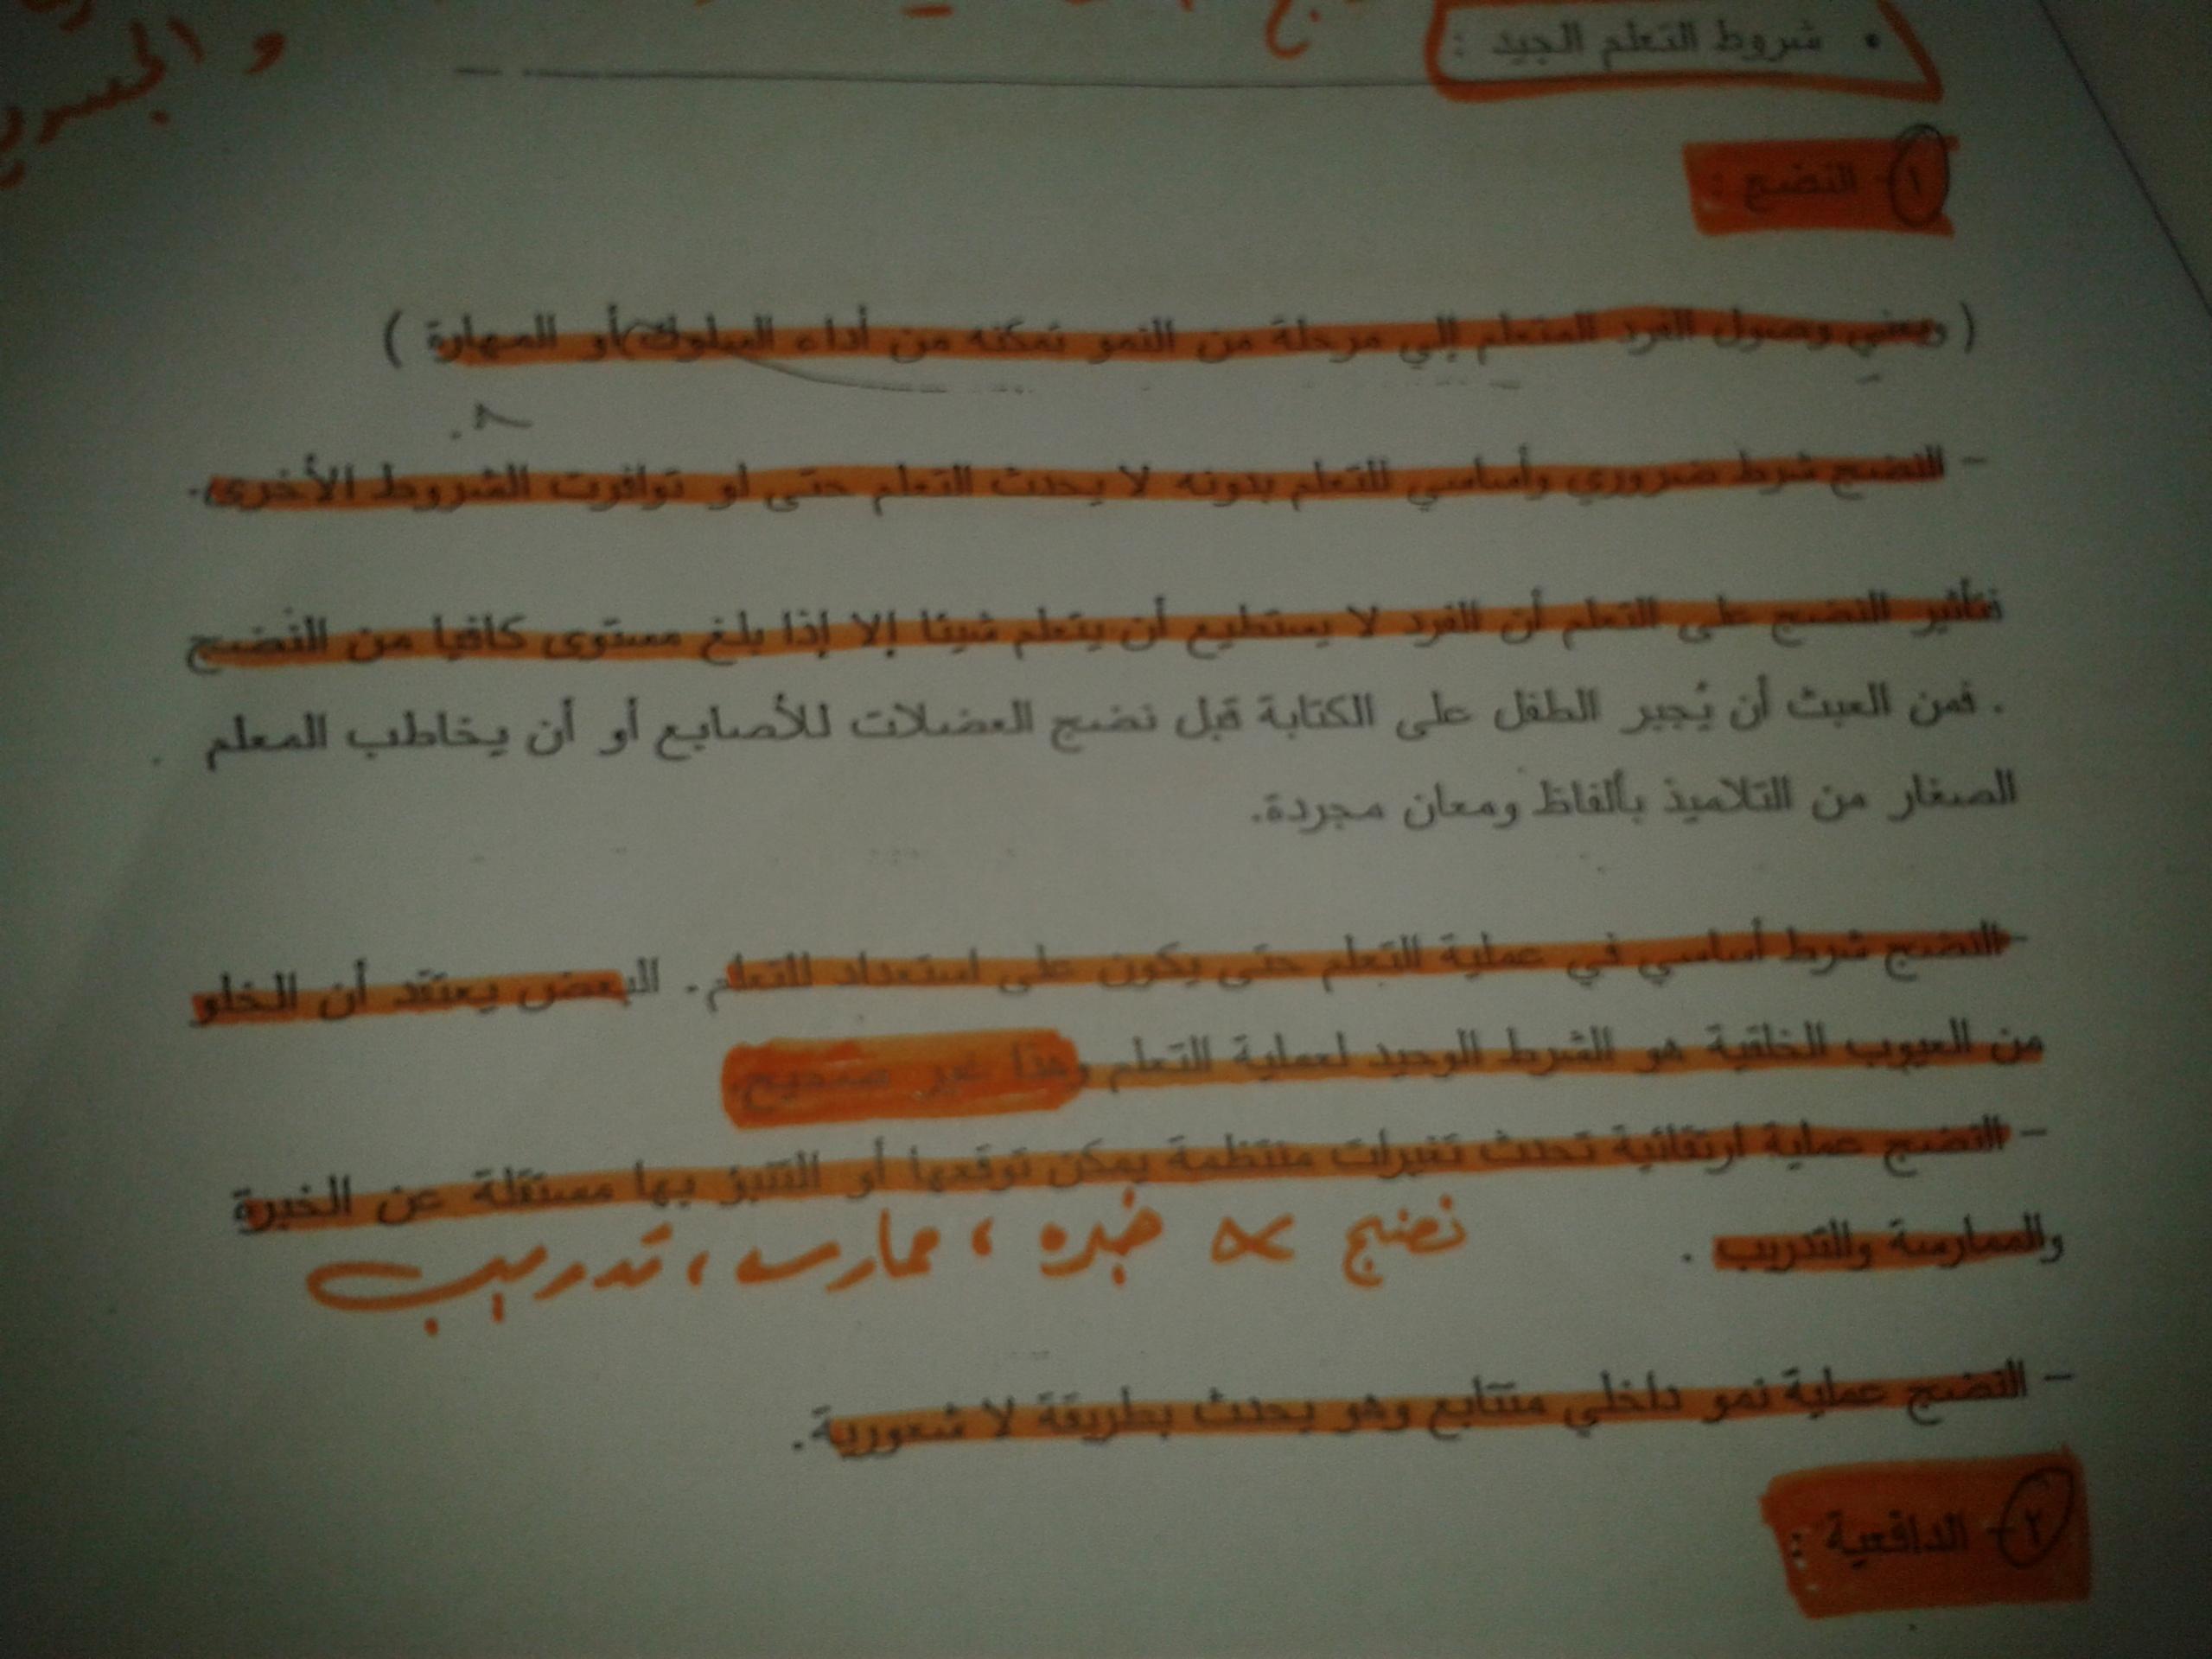 • شروط التعلم الجيد :
والجسمي
١- النضج :
( ويعني وصول الفرد المتعلم إلي مرحلة من النمو تمكنه من أداء السلوك أو المهارة )
- النضج شرط ضروري وأساسي للتعلم بدونه لا يحدث التعلم حتى لو توافرت الشروط الأخرى.
فتأثير النضج على التعلم أن الفرد لا يستطيع أن يتعلم شيئا إلا إذا بلغ مستوى كافيا من النضج
. فمن العبث أن يُجبر الطفل على الكتابة قبل نضج العضلات للأصابع أو أن يخاطب المعلم
الصغار من التلاميذ بألفاظ ومعان مجردة.
-النضج شرط أساسي في عملية التعلم حتى يكون على استعداد للتعلم. البعض يعتقد أن الخلو
من العيوب الخلقية هو الشرط الوحيد لعملية التعلم وهذا غير صحيح.
- النضج عملية ارتقائية تحدث تغيرات منتظمة يمكن توقعها أو التنبؤ بها مستقلة عن الخبرة
والممارسة والتدريب .
نضج ∝ خبره ، ممارسه ، تدريب
- النضج عملية نمو داخلي متتابع وهو يحدث بطريقة لا شعورية.
٢- الدافعية :